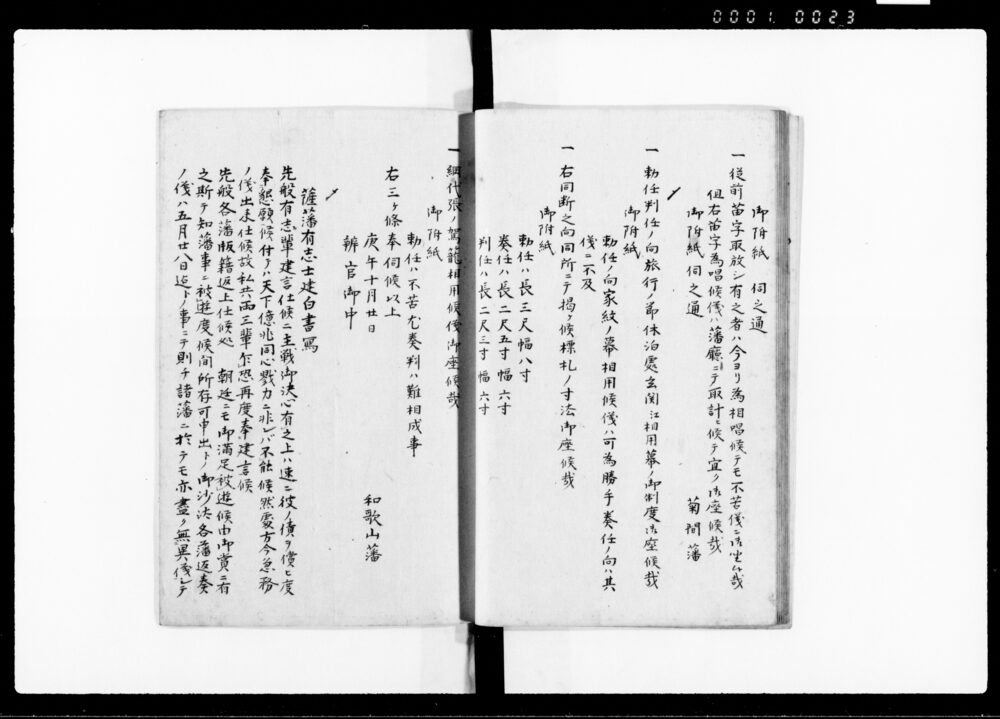 0001. 0023
御附紙 伺之通
一 従前苗字取放シ有之者ハ今ヨリ為相唱候テモ不苦儀ニ御坐候哉
但右苗字為唱候儀ハ藩廳ニテ取計候テ宜ク御座候哉
御附紙 伺之通 菊間藩
一 勅任判任ノ向旅行ノ節休泊處玄関江相用幕ノ御制度御座候哉
御附紙
勅任ノ向家紋ノ幕相用候儀ハ可為勝手奏任ノ向ハ其
儀ニ不及
一 右同断之向同所ニテ揭ケ候標札ノ寸法御座候哉
御附紙
勅任ハ長三尺幅八寸
奏任ハ長二尺五寸幅六寸
判任ハ長二尺三寸幅六寸
一 網代張ノ駕籠相用候儀御座候哉
御附紙
勅任ハ不苦尤奏判ハ難相成事
右三ケ條奉伺候以上
庚午十月廿日 和歌山藩
辨官御中
薩藩有志士建白書寫
先般有志輩建言仕候ニ主戰御決心有之上ハ速ニ彼ノ債ヲ償ヒ度
奉懇願候付テハ天下億兆同心戮力ニ非レバ不能候然處方今急務
ノ儀出来仕候故私共両三輩乍恐再度奉建言候
先般各藩版籍返上仕候処 朝廷ニモ御滿足被遊候由御賞ニ有
之斯テ知藩事ニ被遊度候間所存可申出トノ御沙汰各藩返奏
ノ儀ハ五月廿八日迄トノ事ニテ則チ諸藩ニ於テモ亦盡ク無異儀シテ